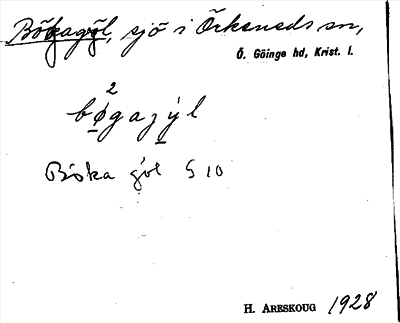 Bökagyl, sjö i Örkeneds sn,
Ö. Göinge hd, Krist. l.
2
bøgazýl
Böka göl S 10
H. ARESKOUG 1928